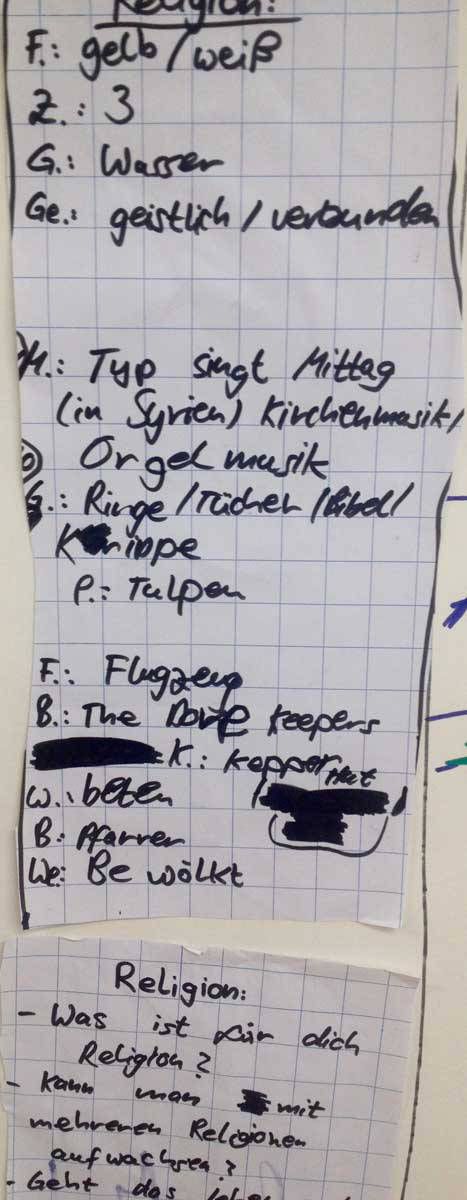 Religion:
F.: gelb/weiß
Z.: 3
G.: Wasser
Ge.: geistlich/verbunden
M.: Typ singt Mittag
(in Syrien) Kirchenmusik/
Orgelmusik
G.: Ringe/Tücher/Bibel/
Krippe
P.: Tulpen
F.: Flugzeug
B.: The Dope Keepers
K.: Kopper Hut
W.: beten
B.: Pfarrer
We: Bewölkt
Religion:
- Was ist für dich
Religion?
- Kann man mit
mehreren Religionen
aufwachsen?
- Geht das